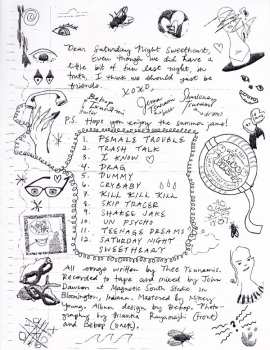 Dear Saturday Night Sweetheart,
Even though we did have a
little bit of fun last night, in
truth, I think we should just be
friends.
XOXO,
P.S. Hope you enjoy the summer jams!
1. FEMALE TROUBLE
2. TRASH TALK
3. I KNOW
4. DRAG
5. DUMMY
6. CRYBABY
7. KILL KILL KILL
8. SKIP TRACER
9. SHAKEE JAKE
10. UN PSYCHO
11. TEENAGE DREAMS
12. SATURDAY NIGHT
SWEETHEART
All songs written by Thee Tsunamis.
Recorded to tape and mixed by John
Dawson at Magnetic South Studio in
Bloomington, Indiana. Mastered by
Young. Album design by Bebop. Photo-
graphy by (front)
and Bebop (back).